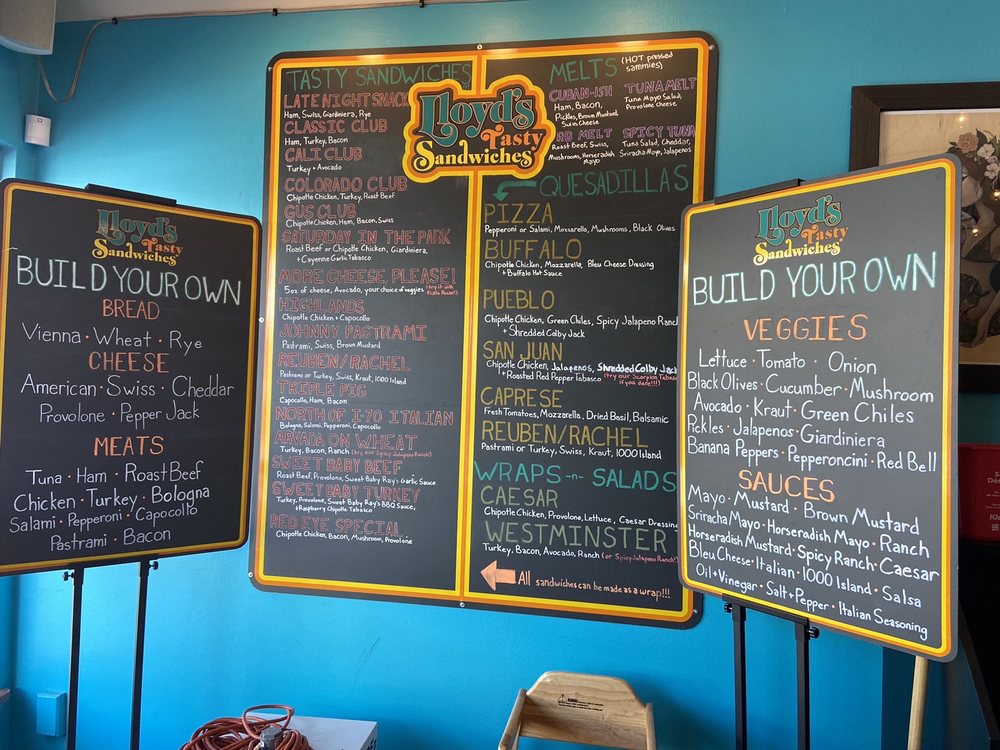 Lloyd's
Tasty
Sandwiches
BUILD YOUR OWN
BREAD
Vienna · Wheat · Rye
CHEESE
American · Swiss · Cheddar
Provolone · Pepper Jack
MEATS
Tuna · Ham · Roast Beef
Chicken · Turkey · Bologna
Salami · Pepperoni · Capocollo
Pastrami · Bacon
Lloyd's
Tasty
Sandwiches
TASTY SANDWICHES
LATE NIGHT SNACK
Ham, Swiss, Giardiniera, Rye
CLASSIC CLUB
Ham, Turkey, Bacon
CALI CLUB
Turkey + Avocado
COLORADO CLUB
Chipotle Chicken, Turkey, Roast Beef
GUS CLUB
Chipotle Chicken, Ham, Bacon, Swiss
SATURDAY IN THE PARK
Roast Beef or Chipotle Chicken, Giardiniera,
+ Cayenne Garlic Tabasco
MORE CHEESE, PLEASE!
5oz of cheese, Avocado, your choice of veggies (try it with
Pickle Power!)
HIGHLANDS
Chipotle Chicken + Capocollo
JOHNNY PASTRAMI
Pastrami, Swiss, Brown Mustard
REUBEN/RACHEL
Pastrami or Turkey, Swiss, Kraut, 1000 Island
TRIPLE PIG
Capocollo, Ham, Bacon
NORTH OF I-70 ITALIAN
Bologna, Salami, Pepperoni, Capocollo
ARVADA ON WHEAT
Turkey, Bacon, Ranch (try our Spicy Jalapeno Ranch!)
SWEET BABY BEEF
Roast Beef, Provolone, Sweet Baby Ray's Garlic Sauce
SWEET BABY TURKEY
Turkey, Provolone, Sweet Baby Ray's BBQ Sauce,
+ Raspberry Chipotle Tabasco
RED EYE SPECIAL
Chipotle Chicken, Bacon, Mushroom, Provolone
MELTS (HOT pressed
sammies)
CUBAN-ISH
Ham, Bacon,
Pickles, Brown Mustard,
Swiss Cheese
TUNA MELT
Tuna Mayo Salad,
Provolone Cheese
RB MELT
Roast Beef, Swiss,
Mushrooms, Horseradish
Mayo
SPICY TUNA
Tuna Salad, Cheddar,
Sriracha Mayo, Jalapenos
QUESADILLAS
PIZZA
Pepperoni or Salami, Mozzarella, Mushrooms, Black Olives
BUFFALO
Chipotle Chicken, Mozzarella, Bleu Cheese Dressing
+ Buffalo Hot Sauce
PUEBLO
Chipotle Chicken, Green Chiles, Spicy Jalapeno Ranch
+ Shredded Colby Jack
SAN JUAN
Chipotle Chicken, Jalapenos, Shredded Colby Jack
+ Roasted Red Pepper Tabasco (try our Scorpion Tabasco
if you dare!!!)
CAPRESE
Fresh Tomatoes, Mozzarella, Dried Basil, Balsamic
REUBEN/RACHEL
Pastrami or Turkey, Swiss, Kraut, 1000 Island
WRAPS -n- SALADS
CAESAR
Chipotle Chicken, Provolone, Lettuce, Caesar Dressing
WESTMINSTER
Turkey, Bacon, Avocado, Ranch (or Spicy Jalapeno Ranch!)
All sandwiches can be made as a wrap!!!
Lloyd's
Tasty
Sandwiches
BUILD YOUR OWN
VEGGIES
Lettuce · Tomato · Onion
Black Olives · Cucumber · Mushroom
Avocado · Kraut · Green Chiles
Pickles · Jalapenos · Giardiniera
Banana Peppers · Pepperoncini · Red Bell
SAUCES
Mayo · Mustard · Brown Mustard
Sriracha Mayo · Horseradish Mayo · Ranch
Horseradish Mustard · Spicy Ranch · Caesar
Bleu Cheese · Italian · 1000 Island · Salsa
Oil + Vinegar · Salt + Pepper · Italian Seasoning